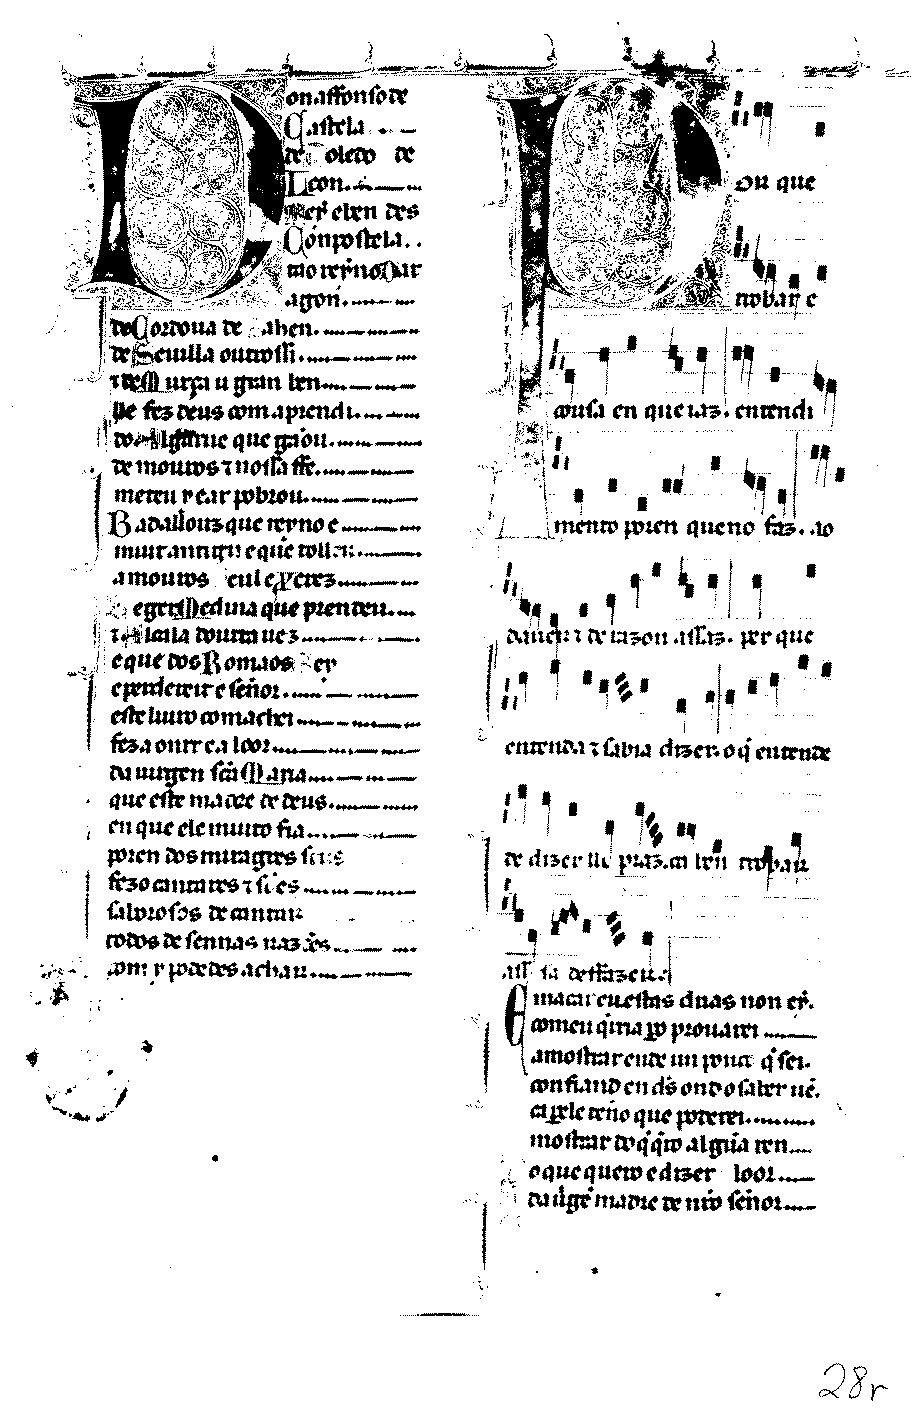 Don affonso de
Castela
de Toledo de
Leon
Rey e ben des
Conpostela
ta o reyno Dar
agon
de Cordoua de Jahen
de Seuilla outrossi
⁊ de Murça u gran ben
lle fez deus com aprendi
do Algarue que gãou
de mouros ⁊ nossa ffe
meteu y e ar pobrou
Badallouz que reyno e
muit antigu e que tolleu
a mouros Neul e Xerez
Beger Medina que prendeu
⁊ Alcala doutra uez
e que dos Romãos Rey
e per dereit e señor
este liuro com achei
fez a onrr e a loor
da uirgen scã Maria
que este madre de deus
en que ele muito fia
poren dos miragres seus
fezo cantares ⁊ sões
saborosos de cantar
todos de sennas razões
com y podedes achar
Por que
trobar e
cousa en que iaz. entendi
mento poren queno faz. ao
dauer ⁊ de razon assaz. per que
entenda ⁊ sabia dizer. o q̇ entende
de dizer lle praz. ca ben trobar
assi sa de ffazer.
E macar eu estas duas non ey.
com eu q̇ria ꝑo prouarei
a mostrar ende un pouc q̇ sei.
confiand en ds̃ ond o saber uẽ.
ca ꝑ ele teño que poderei
mostrar do q̇ q̇ro algũa ren
o que quero e dizer loor
da uirgẽ madre de nr̃o señor
28r